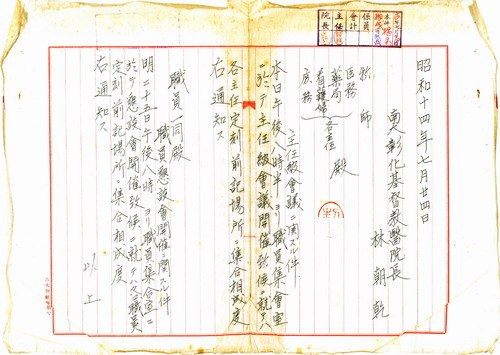 昭和十四年七月廿四日
南大彰化基督教醫院長
林朝乾
牧師
醫務
藥局
看護婦
庶務
各主任
殿
主任級會議ニ関スル件
本日午後八時半ヨリ職員集會室
ニ於テ主任級會議開催致候ニ就テハ
各主任定刻前記場所ニ集合相成度
右通知ス
職員一同殿
職員懇談會開催ニ関スル件
明二十五日午後八時ヨリ職員集合室ニ
於テ懇談會開催致候ニ就テハ職員
定刻前記場所ニ集合相成度
右通知ス
以上
院長
主任
會計
係員